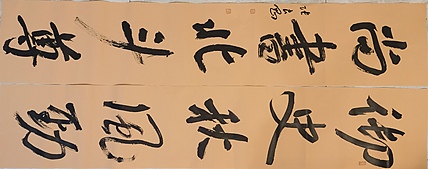 御史秋風勁
尚書北斗尊